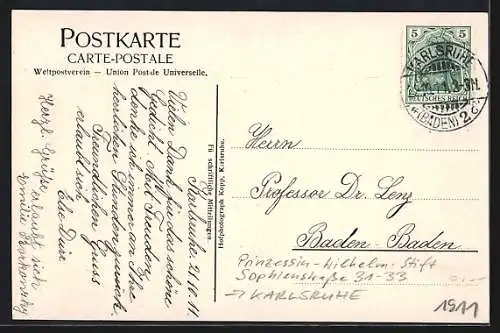 POSTKARTE
CARTE-POSTALE
Weltpostverein — Union Postale Universelle.
5 5
DEUTSCHES REICH
KARLSRUHE
(BADEN) 2
Karlsruhe. 21.10.11
Vielen Dank für das schöne
Gedicht. Mit Freuden
denke ich immer an Ihre
herrlichen Stunden zurück.
Freundlichen Gruss
erlaubt sich
Herzl. Grüße erlaubt sich
Emilie
Für schriftliche Mitteilungen
Hofphotograph Kopp, Karlsruhe.
Herrn
Professor Dr. Lenz
Baden-Baden
Prinzessin-Wilhelm-Stift
Sophienstraße 31-33
→ KARLSRUHE
1911